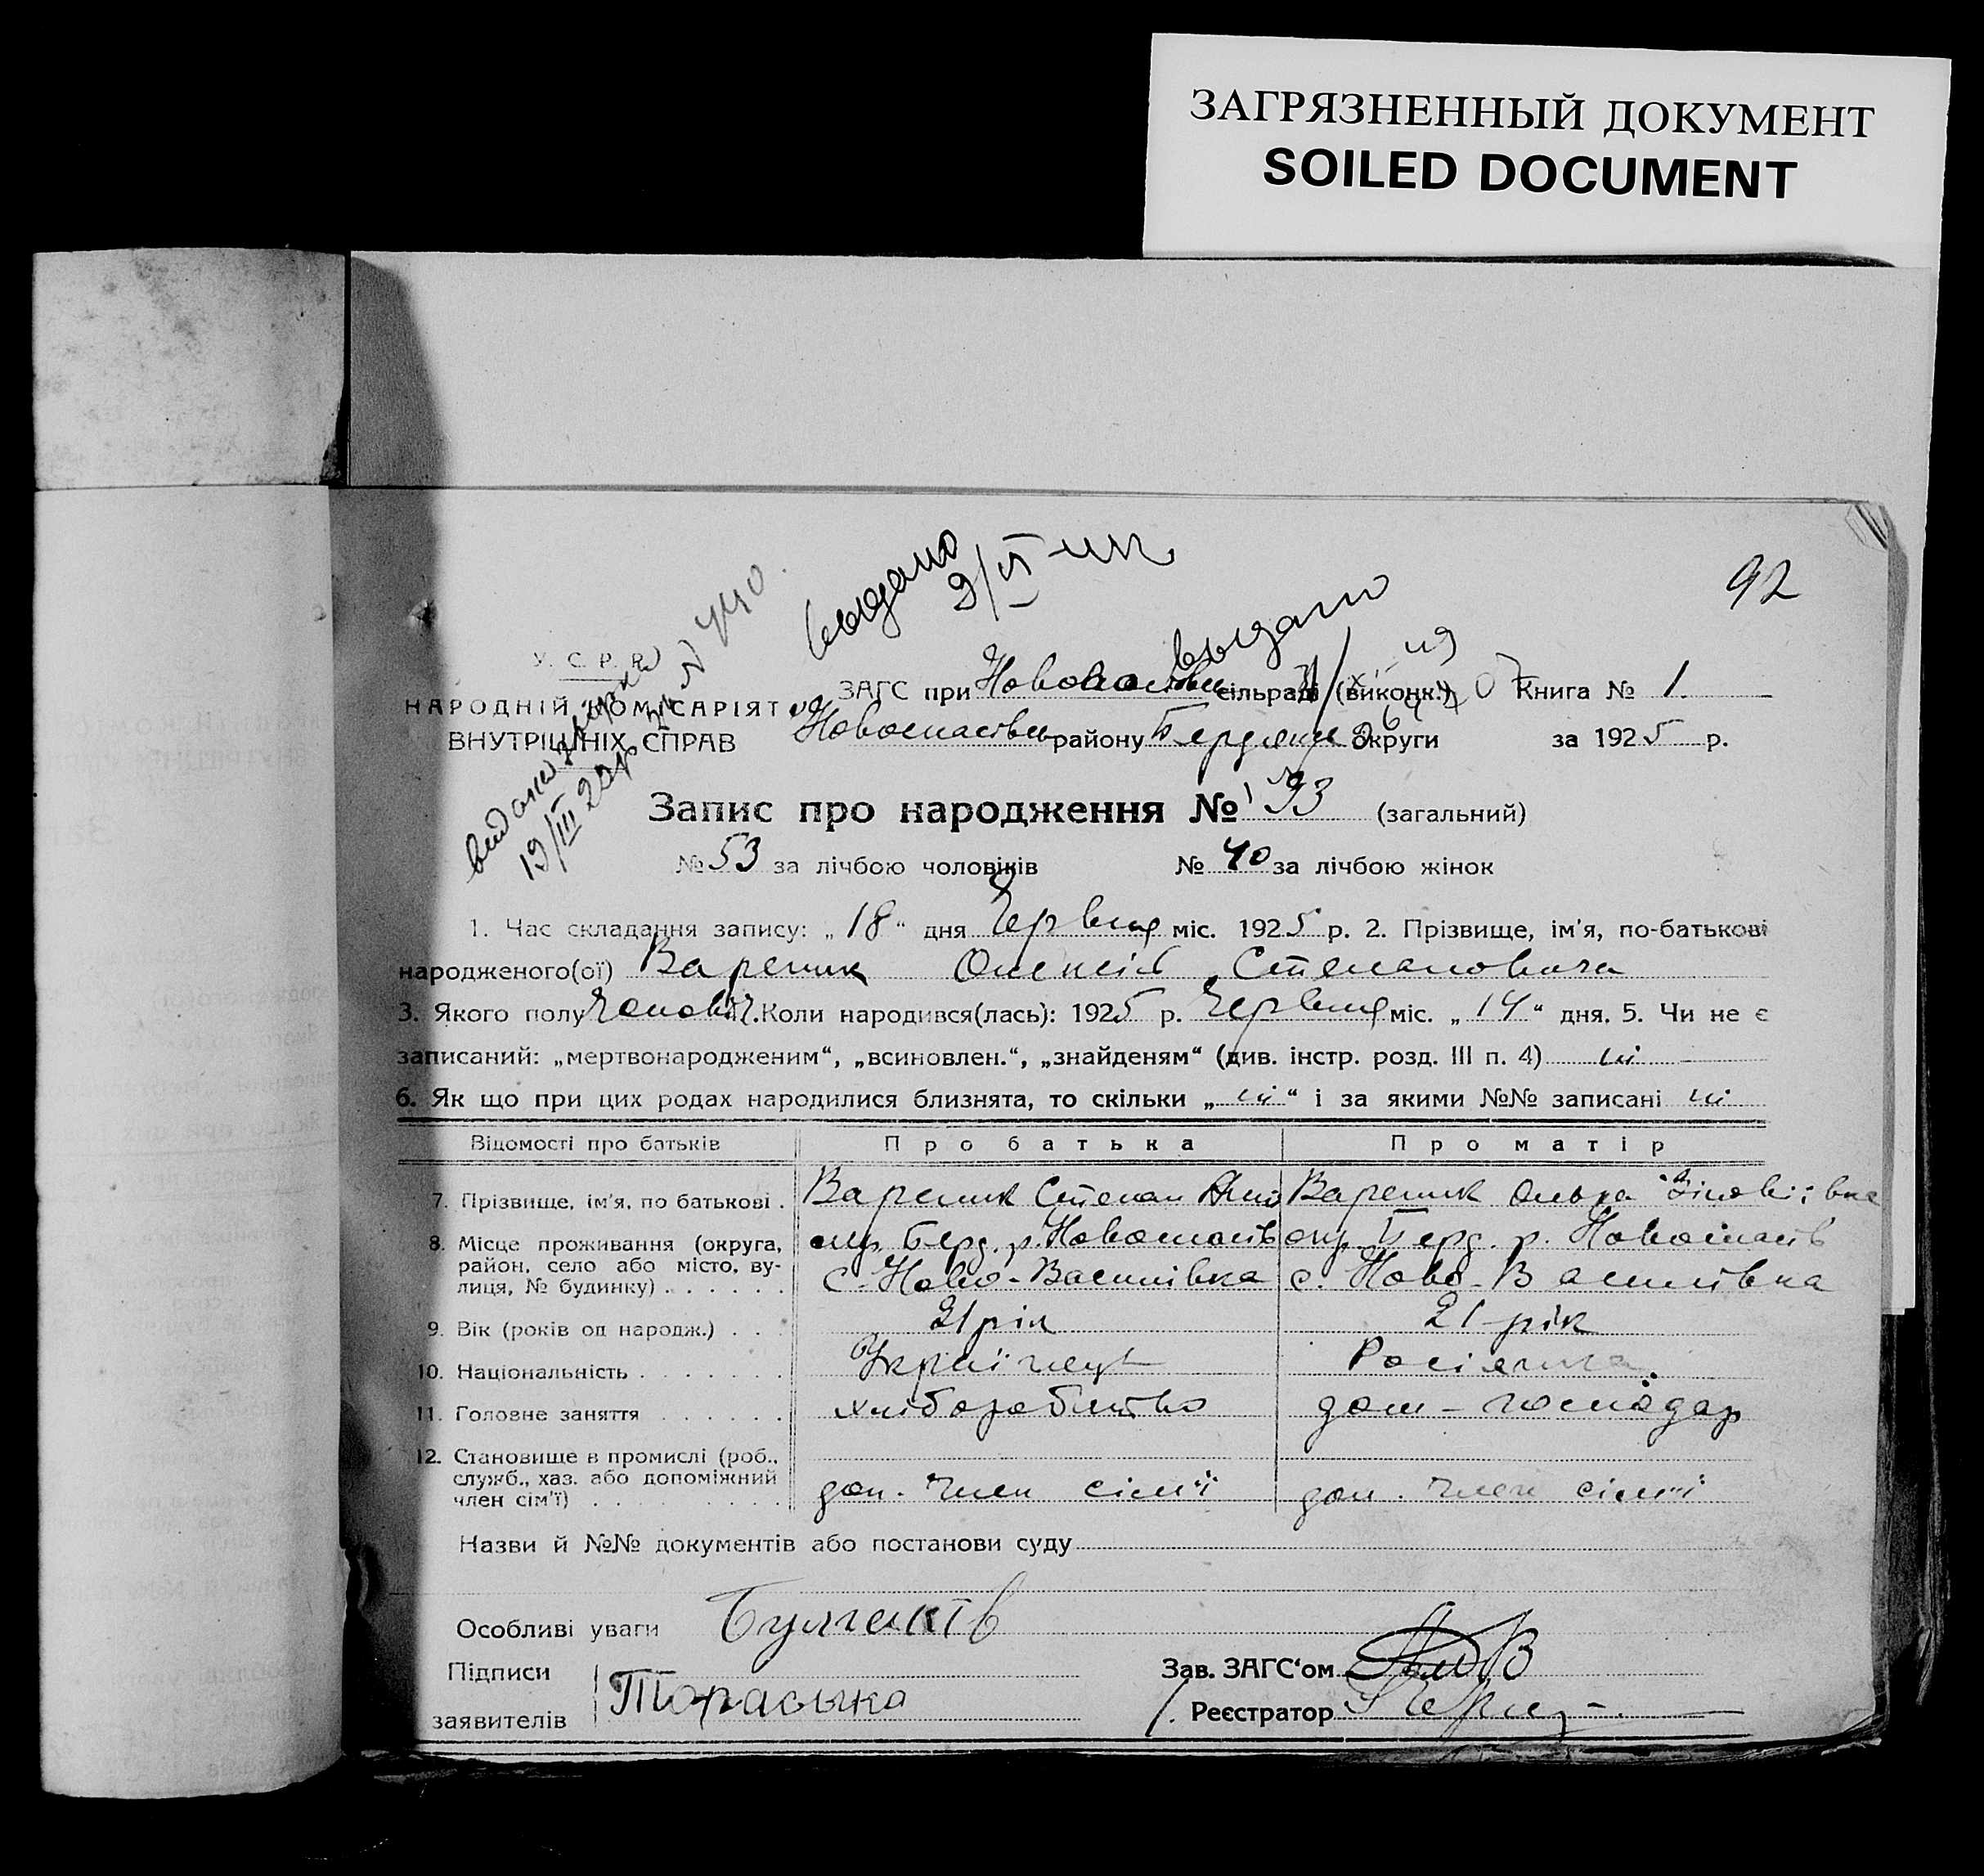 ЗАГРЯЗНЕННЫЙ ДОКУМЕНТ
SOILED DOCUMENT
92
выдано
9/VI
выдано
видано
19/III
№ 440.
У. С. Р. Р.
НАРОДНІЙ КОМІСАРІЯТ
ВНУТРІШНІХ СПРАВ
ЗАГС при Новоспасівськ сільраді (виконк.) Книга № 1.
Новоспасівськ району Бердянськ округи за 1925 р.
Запис про народження № 93 (загальний)
№ 53 за лічбою чоловіків № 40 за лічбою жінок
1. Час складання запису: „18“ дня Червня міс. 1925 р. 2. Прізвище, ім'я, по-батькові
народженого(ої) Вареник Олексій Степановича
3. Якого полу Чоловіч. Коли народився(лась): 1925 р. Червня міс. „14“ дня. 5. Чи не є
записаний: „мертвонародженим“, „всиновлен.“, „знайденям“ (див. інстр. розд. III п. 4) ні
6. Як що при цих родах народилися близнята, то скільки „ні“ і за якими №№ записані ні
Відомості про батьків Про батька Про матір
7. Прізвище, ім'я, по батькові . Вареник Степан Вареник Ольга Зіновіївна
8. Місце проживання (округа, район, село або місто, вулиця, № будинку) . . . . . .
окр. Берд. р. Новоспасів окр. Берд. р. Новоспасів
с. Ново-Василівка с. Ново-Василівка
9. Вік (років од народж.) . . . 21 рік 21 рік
10. Національність . . . . . . . Українець Росіянка
11. Головне заняття . . . . . . хліборобство дом-господар
12. Становище в промислі (роб., служб., хаз. або допоміжний член сім'ї) . . . . . . . . .
доп. член сім'ї доп. член сім'ї
Назви й №№ документів або постанови суду
Особливі уваги
Підписи
заявителів Тараська
Зав. ЗАГС'ом
Реєстратор